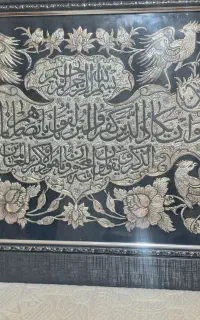 بسم الله الرحمن الرحيم
وان يكاد الذين كفروا ليزلقونك بابصارهم لما
سمعوا الذكر ويقولون انه لمجنون وما هو الا ذكر للعالمين